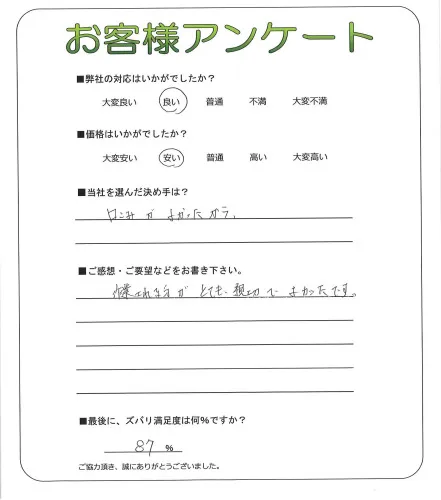 お客様アンケート
■弊社の対応はいかがでしたか?
大変良い 良い 普通 不満 大変不満
■価格はいかがでしたか?
大変安い 安い 普通 高い 大変高い
■当社を選んだ決め手は?
口こみが よかったから。
■ご感想・ご要望などをお書き下さい。
作業 が とても 親切で よかったです。
■最後に、ズバリ満足度は何%ですか?
87 %
ご協力頂き、誠にありがとうございました。